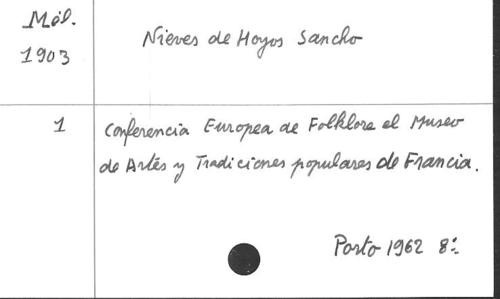 Mél.
1903
Nieves de Hoyos Sancho
1
Conferencia Europea de Folklore el Museo
de Artes y Tradiciones populares de Francia.
Porto 1962 8º